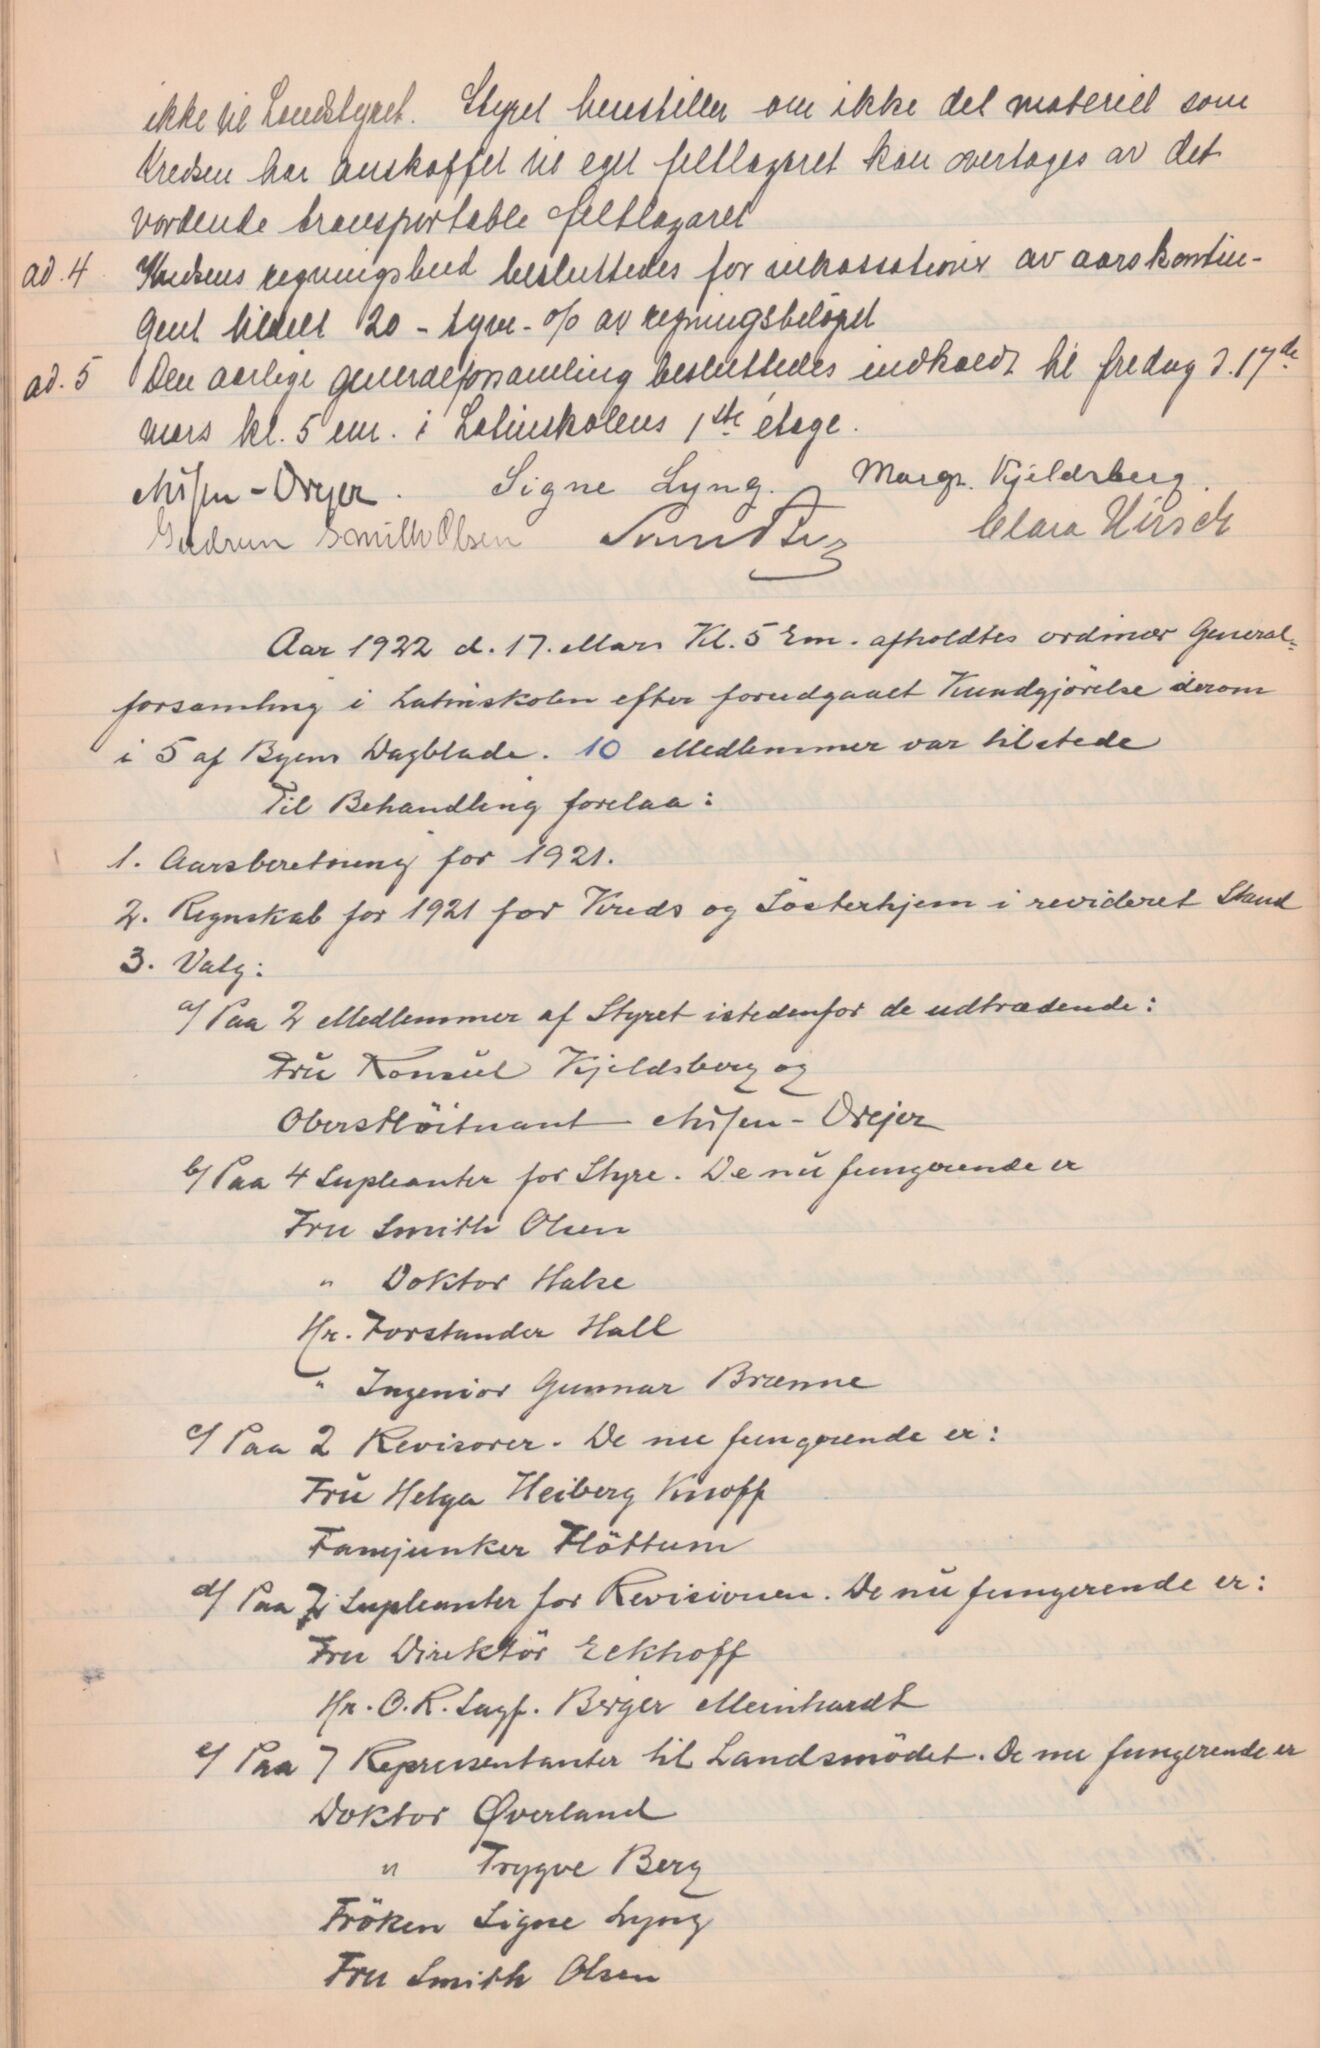 ikke til Landstyret. Styret henstiller om ikke det materiel som
Kredsen har anskaffet til eget feltlazaret kan overtages av det
vordende transportable feltlazaret
ad. 4 Kredsens regningsbud besluttedes for inkassationer av aarskontin-
gent tildelt 20 - tyve - o/o av regningsbeløpet
ad. 5 Den aarlige generalforsamling besluttedes indkaldt til fredag d. 17de
mars kl. 5 em. i Latinskolens 1ste étage.
Nissen-Drejer. Signe Lyng. Margr. Kjeldsberg.
Gudrun Smith Olsen Clara Hirsch
Aar 1922 d. 17. Mars Kl. 5 Em. afholdtes ordinær General=
forsamling i Latinskolen efter forudgaaet Kundgjörelse derom
i 5 af Byens Dagblade. 10 Medlemmer var tilstede
Til Behandling forelaa:
1. Aarsberetning for 1921.
2. Regnskab for 1921 for Kreds og Sösterhjem i revideret Stand
3. Valg:
a/ Paa 2 Medlemmer af Styret istedenfor de udtrædende:
Fru Konsul Kjeldsberg og
Oberstlöitnant Nissen-Drejer
b/ Paa 4 Supleanter for Styre. De nu fungerende er
Fru Smith Olsen
" Doktor Halse
Hr. Forstander Hall
" Ingeniör Gunnar Brænne
c/ Paa 2 Revisorer. De nu fungerende er:
Fru Helga Heiberg Knoff
Fanejunker Flöttum
d/ Paa 2 Supleanter for Revisionen. De nu fungerende er:
Fru Direktör Eckhoff
Hr. O.R.Sagf. Berger Meinhardt
e/ Paa 7 Representanter til Landsmödet. De nu fungerende er
Doktor Øverland
" Trygve Berg
Fröken Signe Lyng
Fru Smith Olsen